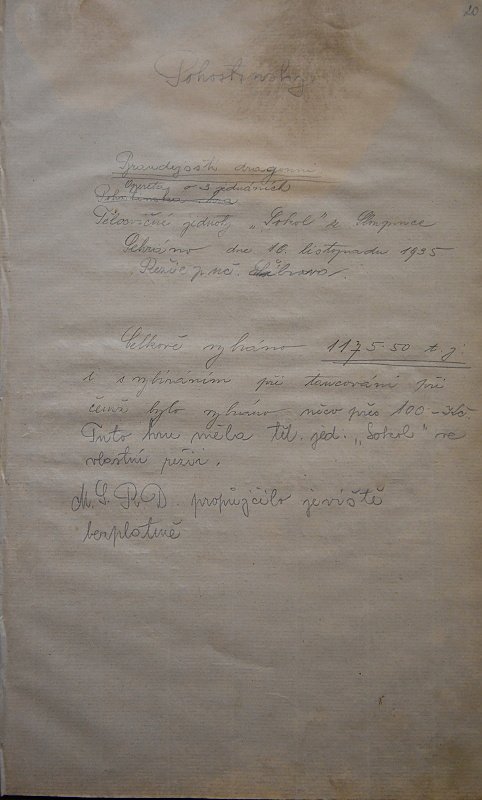 20
Pohostinsky
Brandýsští dragouni
Opereta o 3 jednáních
Tělocvičné jednoty „Sokol" v
Sehráno dne 16. listopadu 1935
Režie p. uč.
Celkově vybráno 1175·50 t. j.
i s vybíráním při tancování při
čemž bylo vybráno něco přes 100 – Kč.
Tuto hru měla těl. jed. „Sokol" ve
vlastní režii.
M. S. R. D. propůjčilo jeviště
bezplatně